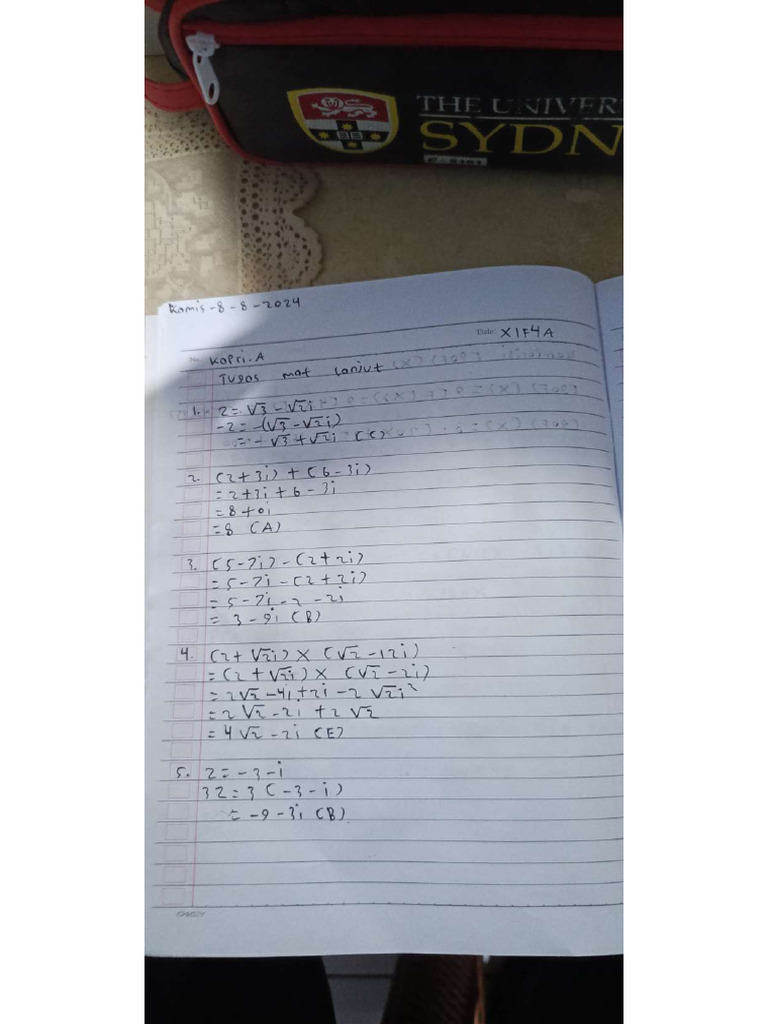 THE UNIVER
SYDN
Kamis-8-8-2024
Date: XIF4A
No. Kapri.A
Tugas mat lanjut
1. z = √3 - √2i
-z = -(√3 - √2i)
= -√3 + √2i (C)
2. (2+3i) + (6-3i)
= 2+3i + 6 - 3i
= 8 + 0i
= 8 (A)
3. (5-7i) - (2+2i)
= 5-7i - (2+2i)
= 5-7i - 2 - 2i
= 3 - 9i (B)
4. (2 + √2i) × (√2 - 12i)
= (2 + √2i) × (√2 - 2i)
= 2√2 - 4i + 2i - 2√2i²
= 2√2 - 2i + 2√2
= 4√2 - 2i (E)
5. z = -3 - i
3z = 3(-3 - i)
= -9 - 3i (B)